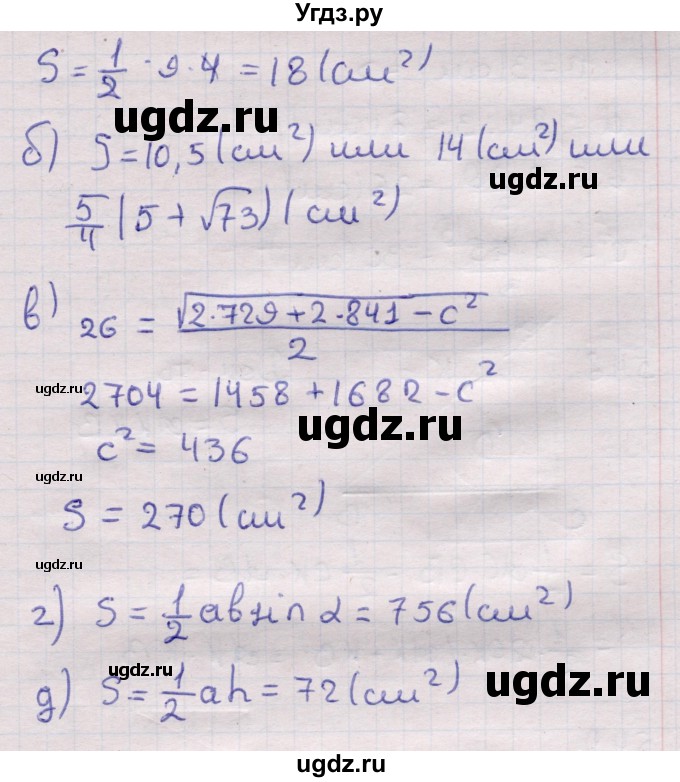 Угдз.ру
S = 1/2 · 9 · 4 = 18 (см²)
ugdz.ru
б) S = 10,5 (см²) или 14 (см²) или
ugdz.ru
5/4 (5 + √73) (см²)
в) 26 = √(2·729 + 2·841 − c²)/2
ugdz.ru
2704 = 1458 + 1682 − c²
ugdz.ru
c² = 436
ugdz.ru
S = 270 (см²)
ugdz.ru
г) S = 1/2 ab sin α = 756 (см²)
ugdz.ru
ugdz.ru
д) S = 1/2 ah = 72 (см²)
ugdz.ru
ugdz.ru